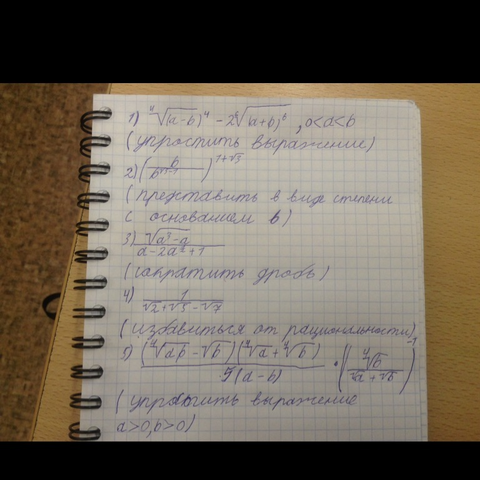 1) ⁴√(a-b)⁴ - 2⁶√(a+b)⁶, 0<a<b
(упростить выражение)
2) ( b / )^1+√3
(представить в виде степени
с основанием b)
3) a-2a +1
(сократить дробь)
4) 1 / √2+√5-√7
(избавиться от рациональности)
5) (⁴√ab - √b)(⁴√a + ⁴√b) / (a-b) • ( ⁴√b / √a+√b )⁻¹
(упростить выражение
a>0, b>0)